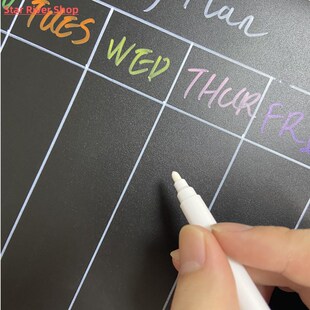 Star River Shop
Plan
TUES
WED
THUR
FRI